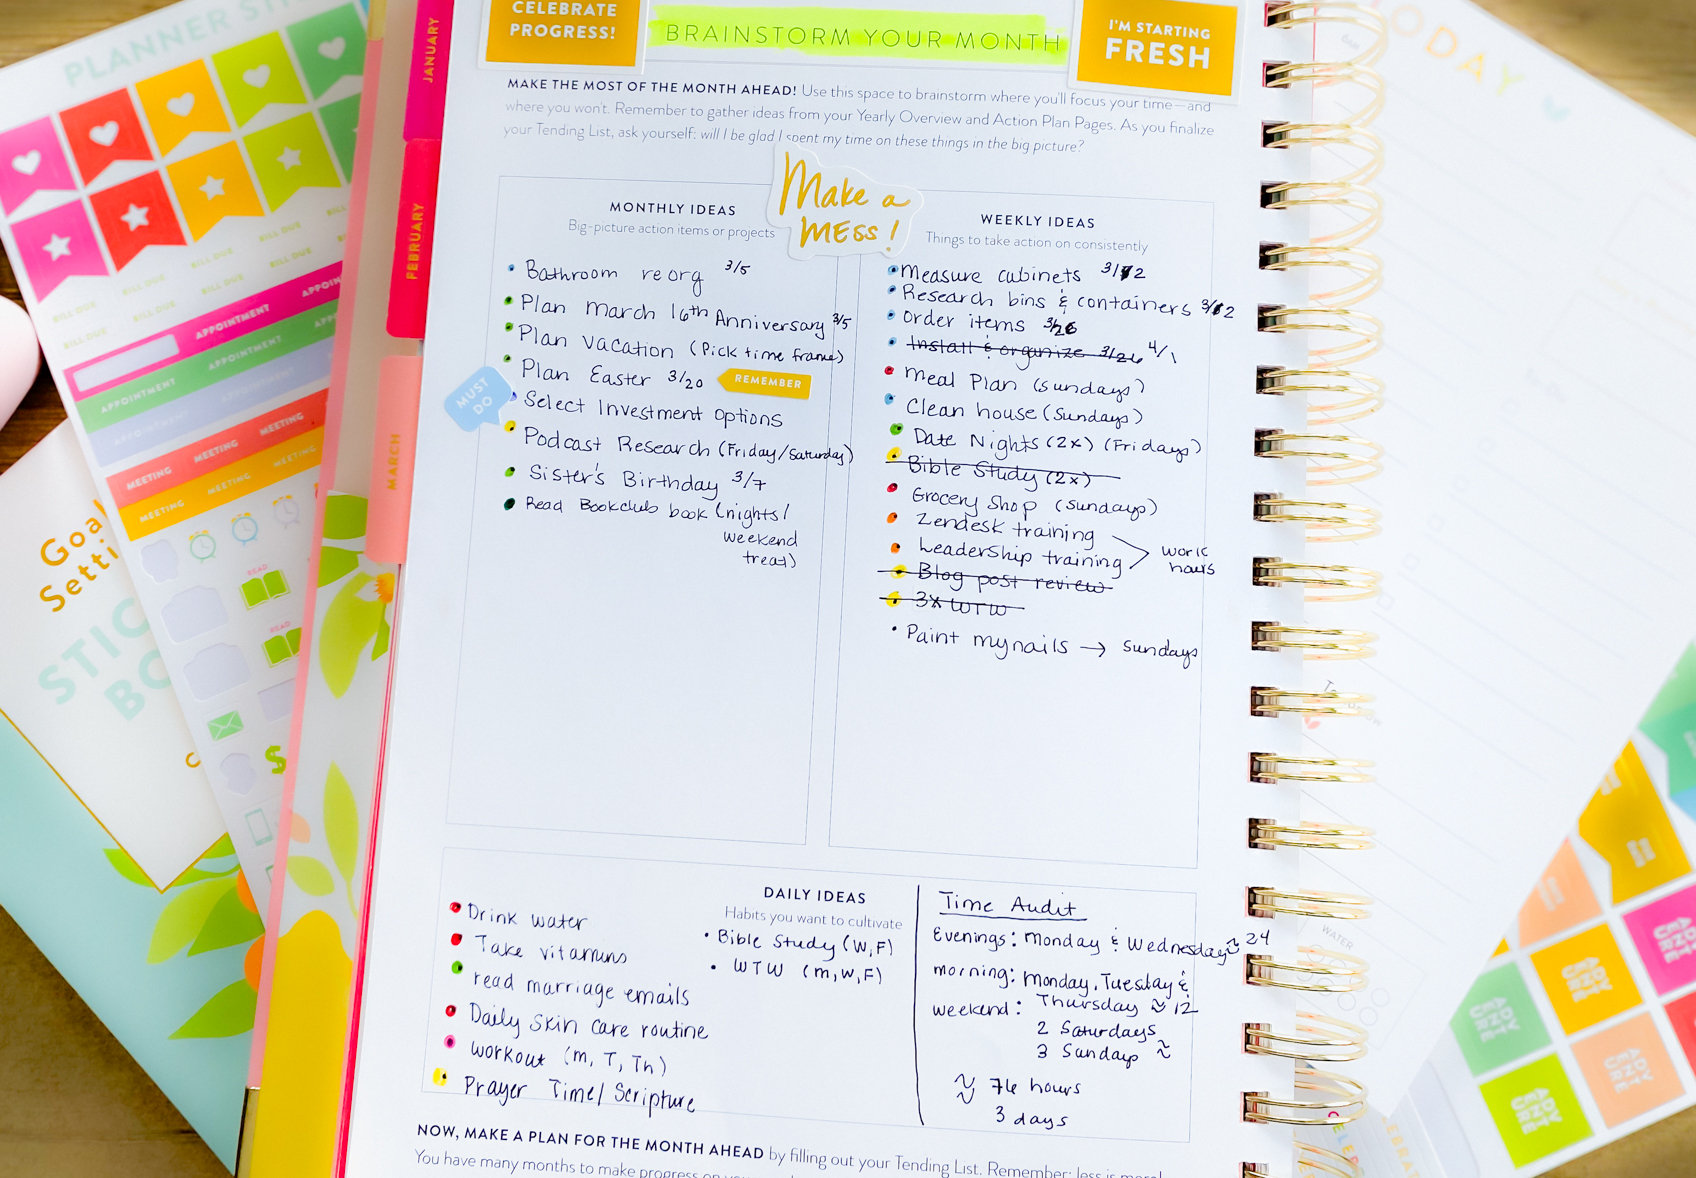 PLANNER
BILL DUE
BILL DUE
BILL DUE
BILL DUE
BILL DUE
BILL DUE
BILL DUE
APPOINTMENT
APPOINTMENT
APPOINTMENT
MEETING
MEETING
MEETING
MEETING
MEETING
MEETING
READ
READ
Goal
Setti
STIC
BO
JANUARY
FEBRUARY
MARCH
CELEBRATE
PROGRESS!
BRAINSTORM YOUR MONTH
I'M STARTING
FRESH
MAKE THE MOST OF THE MONTH AHEAD! Use this space to brainstorm where you'll focus your time—and
where you won't. Remember to gather ideas from your Yearly Overview and Action Plan Pages. As you finalize
your Tending List, ask yourself: will I be glad I spent my time on these things in the big picture?
Make a
MESS!
MONTHLY IDEAS
Big-picture action items or projects
• Bathroom reorg 3/5
• Plan March 16th Anniversary 3/5
• Plan vacation (Pick time frame)
• Plan Easter 3/20
REMEMBER
MUST
DO
• Select Investment options
• Podcast Research (Friday/Saturday)
• Sister's Birthday 3/7
• Read Bookclub book (nights/
weekend
treat)
WEEKLY IDEAS
Things to take action on consistently
• Measure cabinets 3/12
• Research bins & containers 3/12
• Order items 3/26
• Install & organize 3/26 4/1
• Meal Plan (Sundays)
• Clean house (Sundays)
• Date Nights (2x) (Fridays)
• Bible Study (2x)
• Grocery Shop (Sundays)
• Zendesk training
• Leadership training
work
hours
• Blog post review
• 3x WTW
• Paint my nails → Sundays
DAILY IDEAS
Habits you want to cultivate
• Drink water
• Take vitamins
• read marriage emails
• Daily Skin care routine
• workout (M, T, Th)
• Prayer Time/Scripture
• Bible Study (W,F)
• WTW (M,W,F)
Time Audit
Evenings: Monday & Wednesday ≈ 24
morning: Monday, Tuesday &
Thursday ≈ 12
weekend:
2 Saturdays
3 Sundays ≈
≈ 76 hours
3 days
NOW, MAKE A PLAN FOR THE MONTH AHEAD by filling out your Tending List. Remember: less is more!
You have many months to make progress on
TODAY
WATER